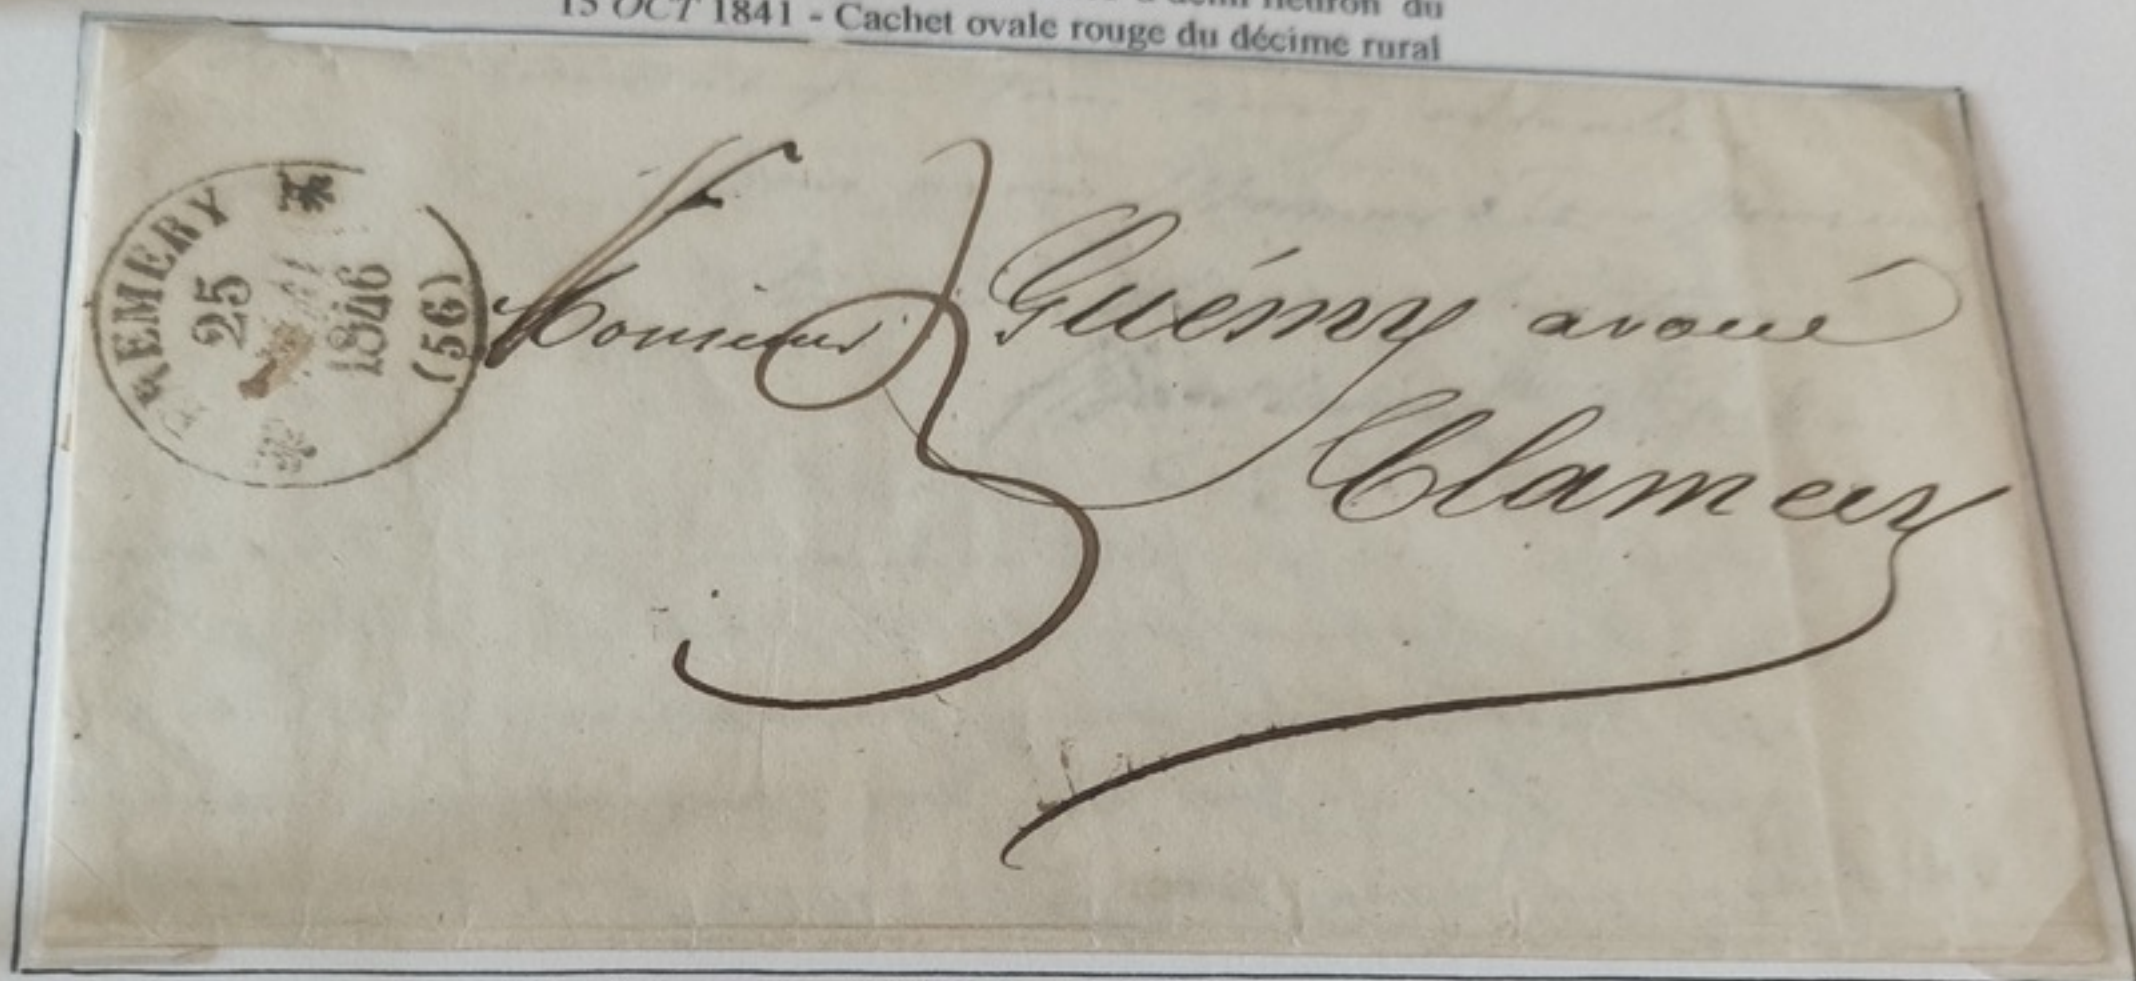 du
15 OCT 1841 - Cachet ovale rouge du décime rural
PREMERY
25
1846
(56)
3
Monsieur Guémy avoué
Clamecy